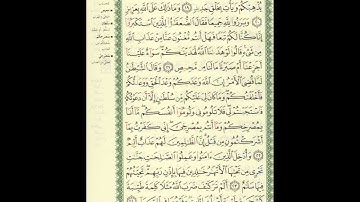 يُذْهِبْكُمْ وَيَأْتِ بِخَلْقٍ جَدِيدٍ ١٩ وَمَا ذَٰلِكَ عَلَى ٱللَّهِ بِعَزِيزٍ
٢٠ وَبَرَزُوا۟ لِلَّهِ جَمِيعًا فَقَالَ ٱلضُّعَفَٰٓؤُا۟ لِلَّذِينَ ٱسْتَكْبَرُوٓا۟
إِنَّا كُنَّا لَكُمْ تَبَعًا فَهَلْ أَنتُم مُّغْنُونَ عَنَّا مِنْ عَذَابِ ٱللَّهِ
مِن شَىْءٍ قَالُوا۟ لَوْ هَدَىٰنَا ٱللَّهُ لَهَدَيْنَٰكُمْ سَوَآءٌ عَلَيْنَآ
أَجَزِعْنَآ أَمْ صَبَرْنَا مَا لَنَا مِن مَّحِيصٍ ٢١ وَقَالَ ٱلشَّيْطَٰنُ
لَمَّا قُضِىَ ٱلْأَمْرُ إِنَّ ٱللَّهَ وَعَدَكُمْ وَعْدَ ٱلْحَقِّ وَوَعَدتُّكُمْ
فَأَخْلَفْتُكُمْ وَمَا كَانَ لِىَ عَلَيْكُم مِّن سُلْطَٰنٍ إِلَّآ أَن دَعَوْتُكُمْ
فَٱسْتَجَبْتُمْ لِى فَلَا تَلُومُونِى وَلُومُوٓا۟ أَنفُسَكُم مَّآ أَنَا۠
بِمُصْرِخِكُمْ وَمَآ أَنتُم بِمُصْرِخِىَّ إِنِّى كَفَرْتُ بِمَآ
أَشْرَكْتُمُونِ مِن قَبْلُ إِنَّ ٱلظَّٰلِمِينَ لَهُمْ عَذَابٌ أَلِيمٌ
٢٢ وَأُدْخِلَ ٱلَّذِينَ ءَامَنُوا۟ وَعَمِلُوا۟ ٱلصَّٰلِحَٰتِ جَنَّٰتٍ
تَجْرِى مِن تَحْتِهَا ٱلْأَنْهَٰرُ خَٰلِدِينَ فِيهَا بِإِذْنِ رَبِّهِمْ تَحِيَّتُهُمْ
فِيهَا سَلَٰمٌ ٢٣ أَلَمْ تَرَ كَيْفَ ضَرَبَ ٱللَّهُ مَثَلًا كَلِمَةً طَيِّبَةً